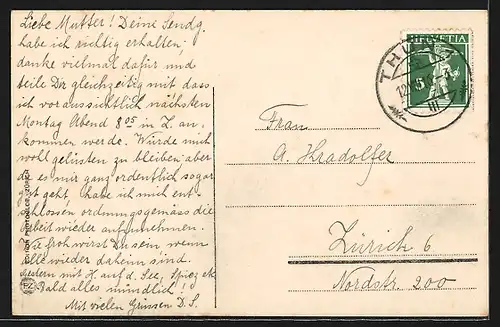 Liebe Mutter! Deine Sendg.
habe ich richtig erhalten
danke vielmal dafür und
teile Dir gleichzeitig mit dass
ich voraussichtlich nächsten
Montag Abend 8 05 in Z. an-
kommen werde. Würde mich
wohl gelüsten zu bleiben aber
da es mir ganz ordentlich sogar
gut geht, habe ich mich ent-
schlossen ordnungsgemäss die
Arbeit wieder aufzunehmen.
Wie froh wirst Du sein wenn
alle wieder daheim sind.
Gestern mit H. auf d. See, Spiez etc
Bald alles mündlich!
Mit vielen Grüssen D. S.
HELVETIA
THUN
III
Frau
A. Hradolfer
Zürich 6
Nordstr. 200